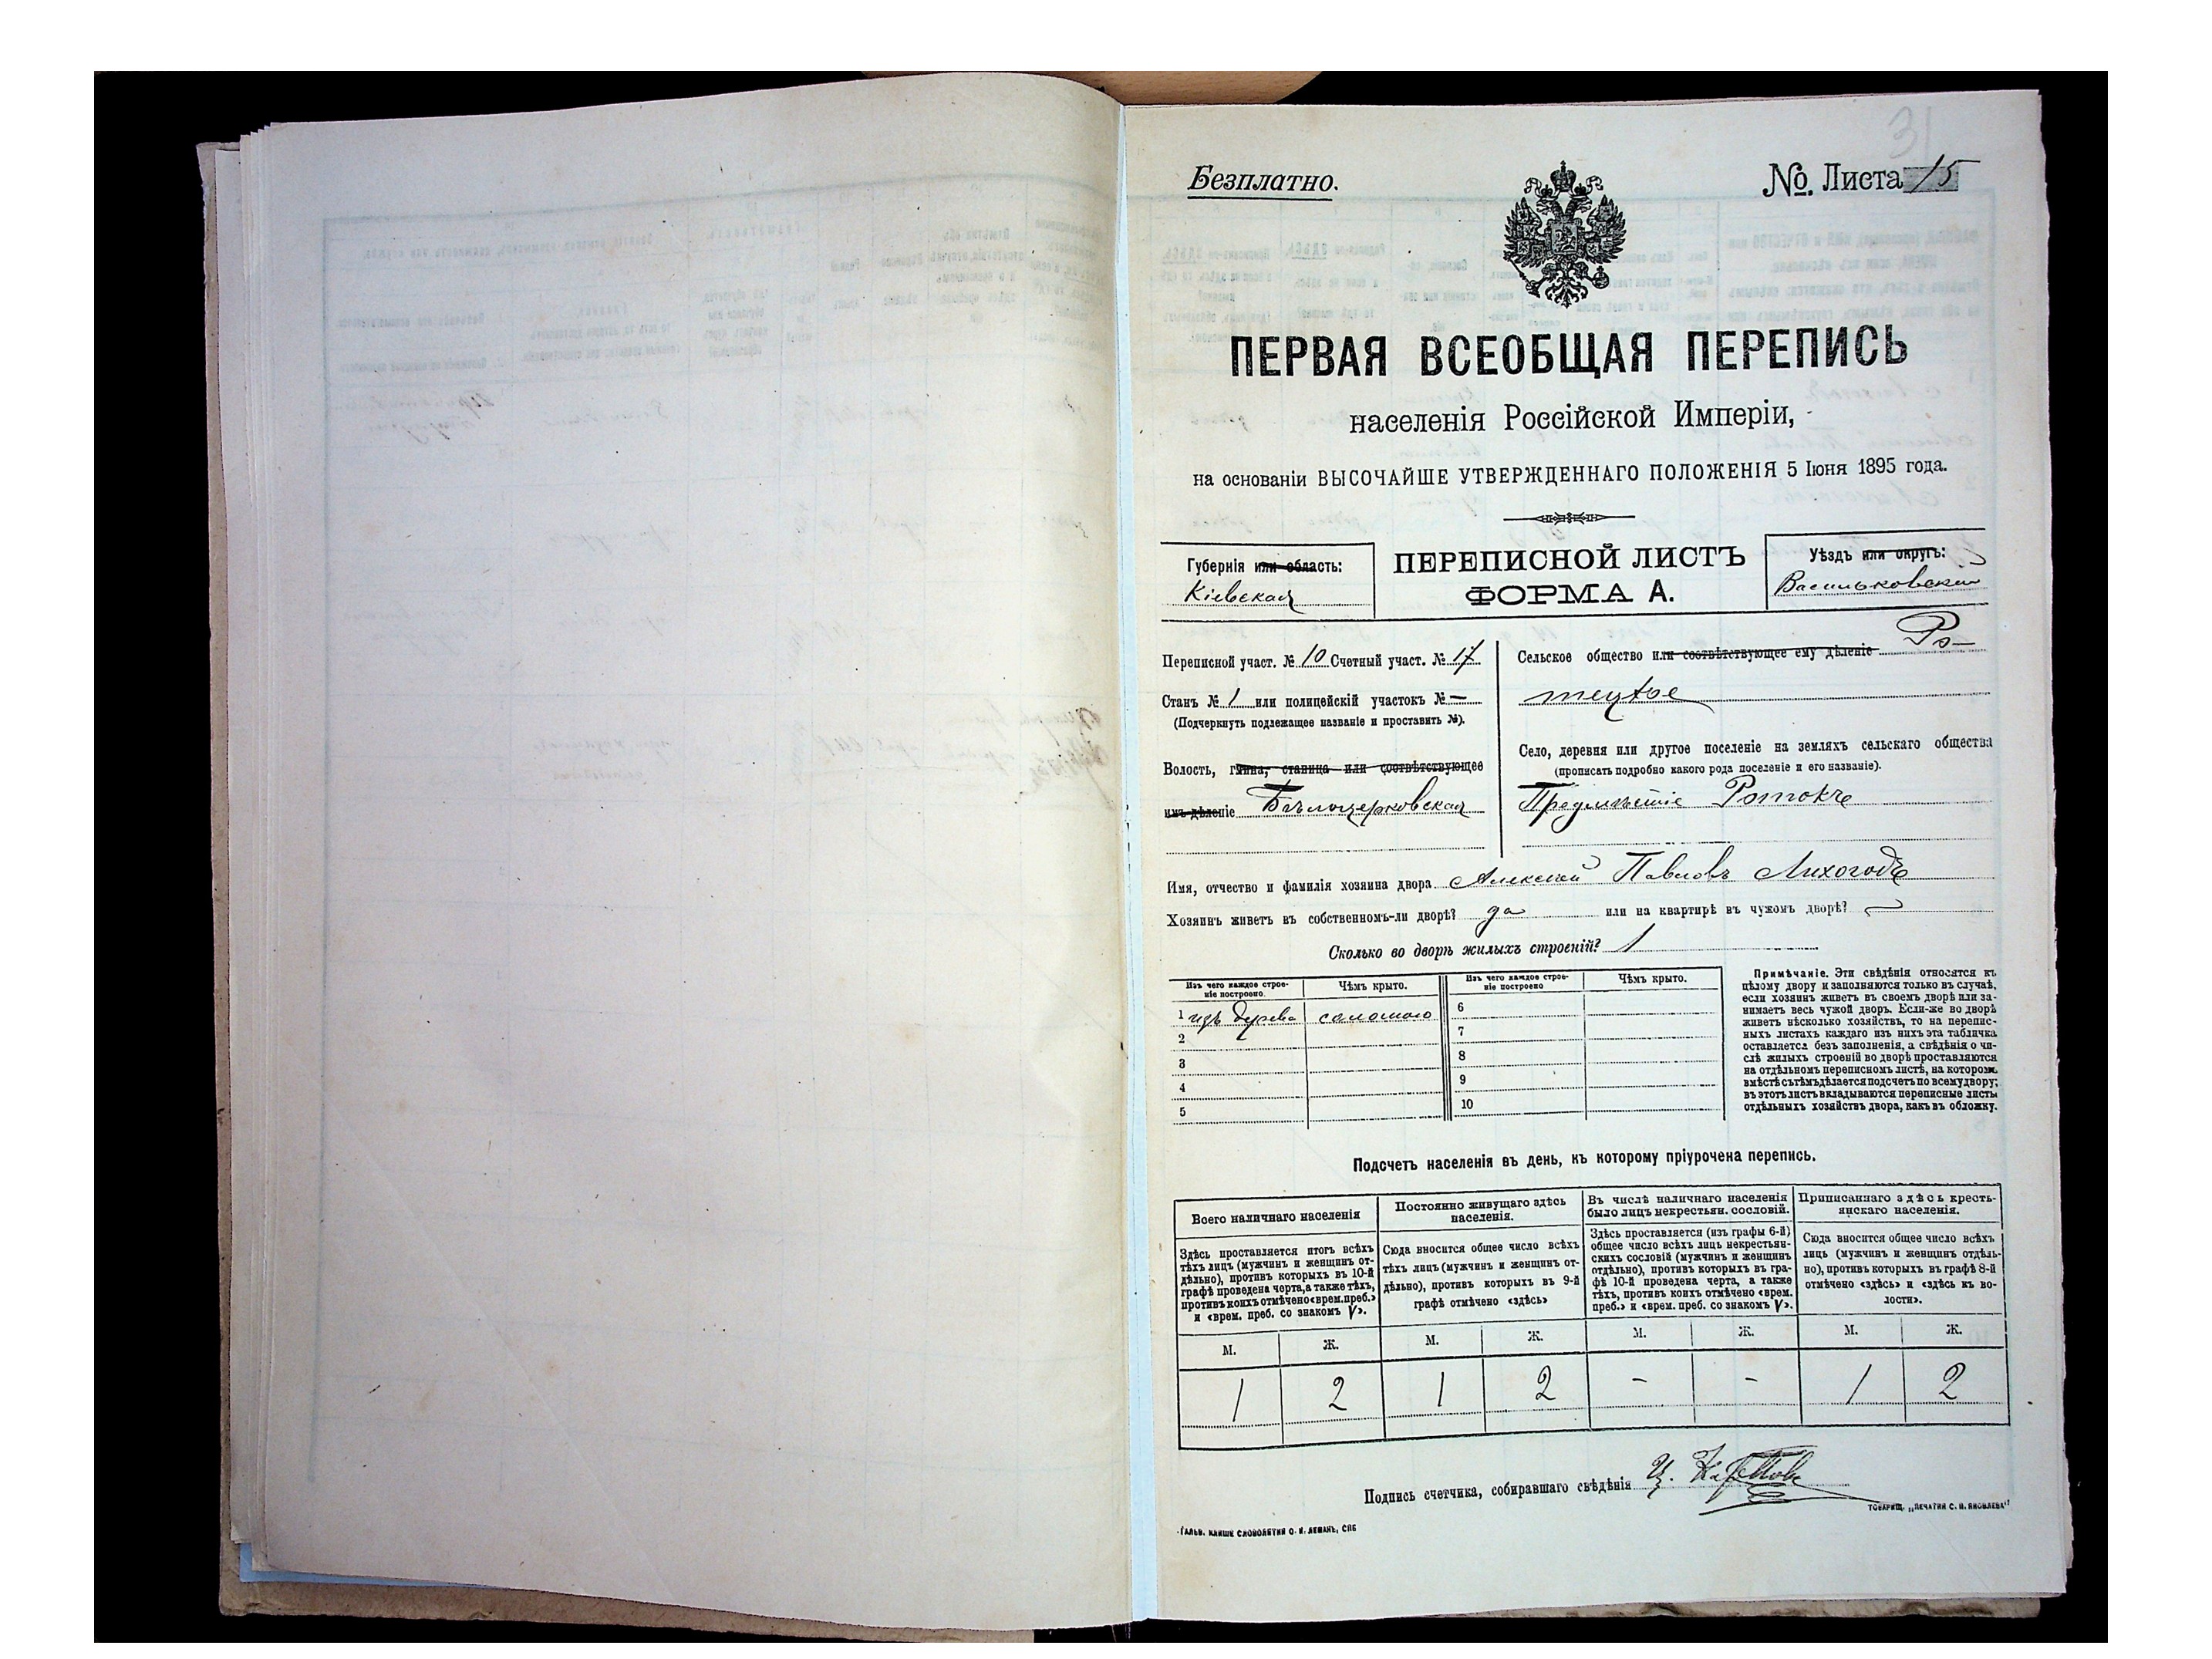 31
Безплатно.
№. Листа 15
ПЕРВАЯ ВСЕОБЩАЯ ПЕРЕПИСЬ
населенія Россійской Имперіи,
на основаніи ВЫСОЧАЙШЕ УТВЕРЖДЕННАГО ПОЛОЖЕНІЯ 5 Іюня 1895 года.
Губернія или область:
Кіевская
ПЕРЕПИСНОЙ ЛИСТЪ
ФОРМА А.
Уѣздъ или округъ:
Васильковскій
Переписной участ. № 10 Счетный участ. № 17
Станъ № 1 или полицейскій участокъ № —
(Подчеркнуть подлежащее названіе и проставить №).
Волость, гмина, станица или соотвѣтствующее
имъ дѣленіе Бѣлоцерковская
Сельское общество или соотвѣтствующее ему дѣленіе Ро-
тецкое
Село, деревня или другое поселеніе на земляхъ сельскаго общества
(прописать подробно какого рода поселеніе и его названіе).
Предмѣстіе Ротокъ
Имя, отчество и фамилія хозяина двора Алексѣй Павловъ Лихогодъ
Хозяинъ живетъ въ собственномъ-ли дворѣ? да или на квартирѣ въ чужомъ дворѣ? —
Сколько во дворѣ жилыхъ строеній? 1
Изъ чего каждое строе-
ніе построено.
Чѣмъ крыто.
1 изъ дерева соломою
2
3
4
5
Изъ чего каждое строе-
ніе построено
Чѣмъ крыто.
6
7
8
9
10
Примѣчаніе. Эти свѣдѣнія относятся къ
цѣлому двору и заполняются только въ случаѣ,
если хозяинъ живетъ въ своемъ дворѣ или за-
нимаетъ весь чужой дворъ. Если-же во дворѣ
живетъ нѣсколько хозяйствъ, то на перепис-
ныхъ листахъ каждаго изъ нихъ эта табличка
оставляется безъ заполненія, а свѣдѣнія о чи-
слѣ жилыхъ строеній во дворѣ проставляются
на отдѣльномъ переписномъ листѣ, на которомъ
вмѣстѣ съ тѣмъ дѣлается подсчетъ по всему двору;
въ этотъ листъ вкладываются переписные листы
отдѣльныхъ хозяйствъ двора, какъ въ обложку.
Подсчетъ населенія въ день, къ которому пріурочена перепись.
Всего наличнаго населенія
Здѣсь проставляется итогъ всѣхъ
тѣхъ лицъ (мужчинъ и женщинъ от-
дѣльно), противъ которыхъ въ 10-й
графѣ проведена черта, а также тѣхъ,
противъ коихъ отмѣчено «врем. преб.»
и «врем. преб. со знакомъ V».
Постоянно живущаго здѣсь
населенія.
Сюда вносится общее число всѣхъ
тѣхъ лицъ (мужчинъ и женщинъ от-
дѣльно), противъ которыхъ въ 9-й
графѣ отмѣчено «здѣсь»
Въ числѣ наличнаго населенія
было лицъ некрестьян. сословій.
Здѣсь проставляется (изъ графы 6-й)
общее число всѣхъ лицъ некрестьян-
скихъ сословій (мужчинъ и женщинъ
отдѣльно), противъ которыхъ въ гра-
фѣ 10-й проведена черта, а также
тѣхъ, противъ коихъ отмѣчено «врем.
преб.» и «врем. преб. со знакомъ V».
Приписаннаго здѣсь кресть-
янскаго населенія.
Сюда вносится общее число всѣхъ
лицъ (мужчинъ и женщинъ отдѣль-
но), противъ которыхъ въ графѣ 8-й
отмѣчено «здѣсь» и «здѣсь къ во-
лости».
М. Ж. М. Ж. М. Ж. М. Ж.
1 2 1 2 - - 1 2
Подпись счетчика, собиравшаго свѣдѣнія
ТОВАРИЩ. „ПЕЧАТНЯ С. П. ЯКОВЛЕВА"
ГАЛЬВ. КЛИШЕ СЛОВОЛИТНИ О. И. ЛЕМАНЪ, СПБ